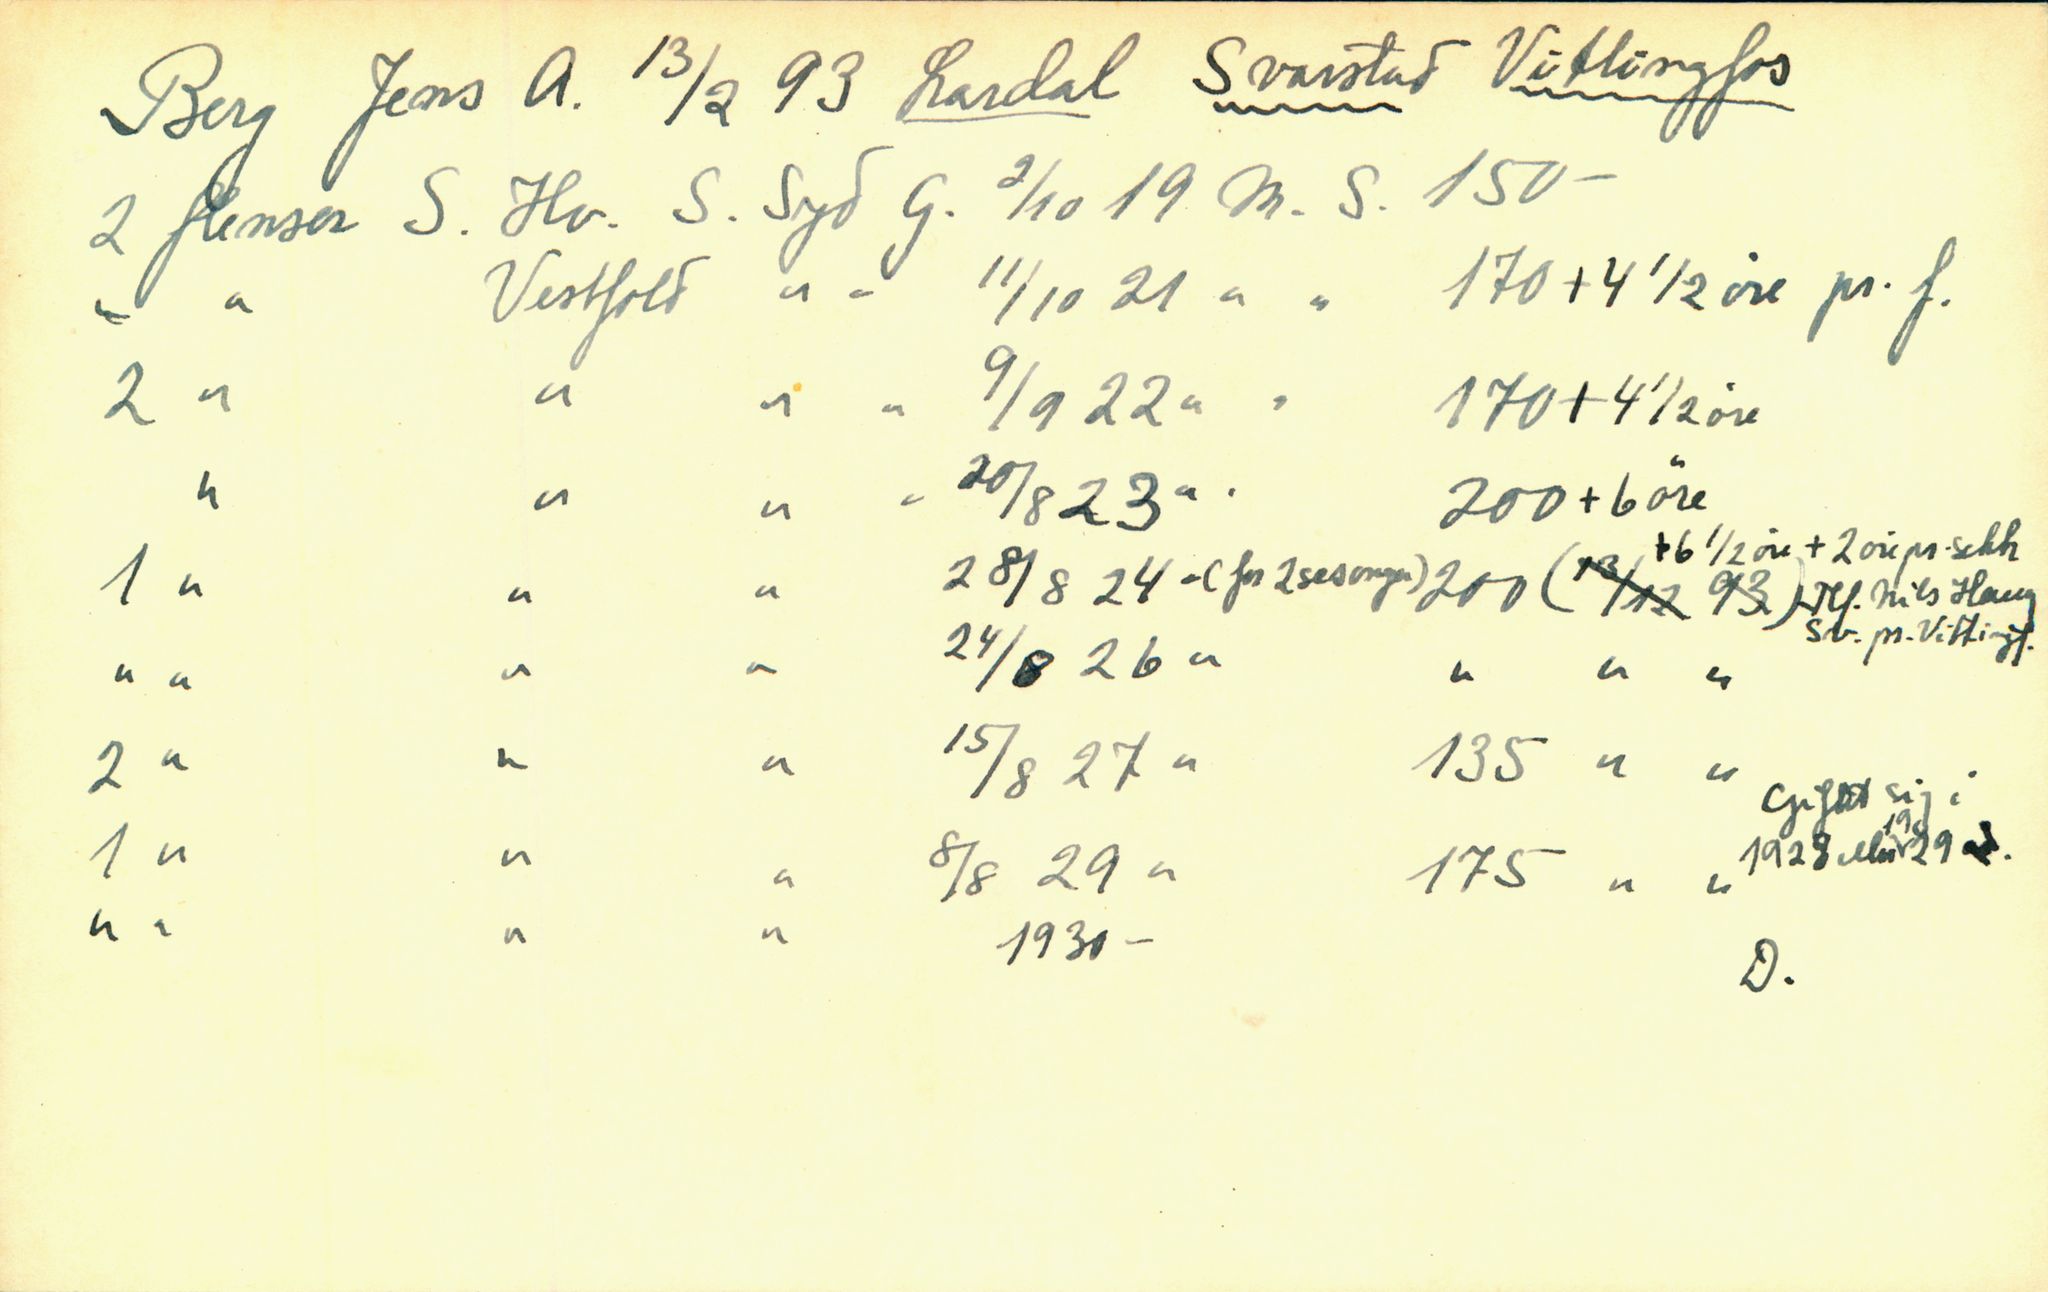 Berg Jens A. 13/2 93 Lardal Svarstad Vittingfos
2 flenser S. Hv. S. Syd G. 2/10 19 M. S. 150-
" " Vestfold " " 11/10 21 " " 170 + 4 1/2 öre pr. f.
2 " " " " 9/9 22 " " 170 + 4 1/2 öre
" " " " 20/8 23 " " 200 + 6 öre
+ 6 1/2 öre + 2 öre pr. sekk
1 " " " 28/8 24 " (for 2 sesonger) 200 (13/12 93) Tlf. Nils Haug
Sv. pr. Vittingf.
" " " " 24/8 26 " " " "
2 " " " 15/8 27 " 135 " "
Giftet sig i
1 " " " 8/8 29 " 175 " " 1928 eller 1929
" " " " 1930 -
D.